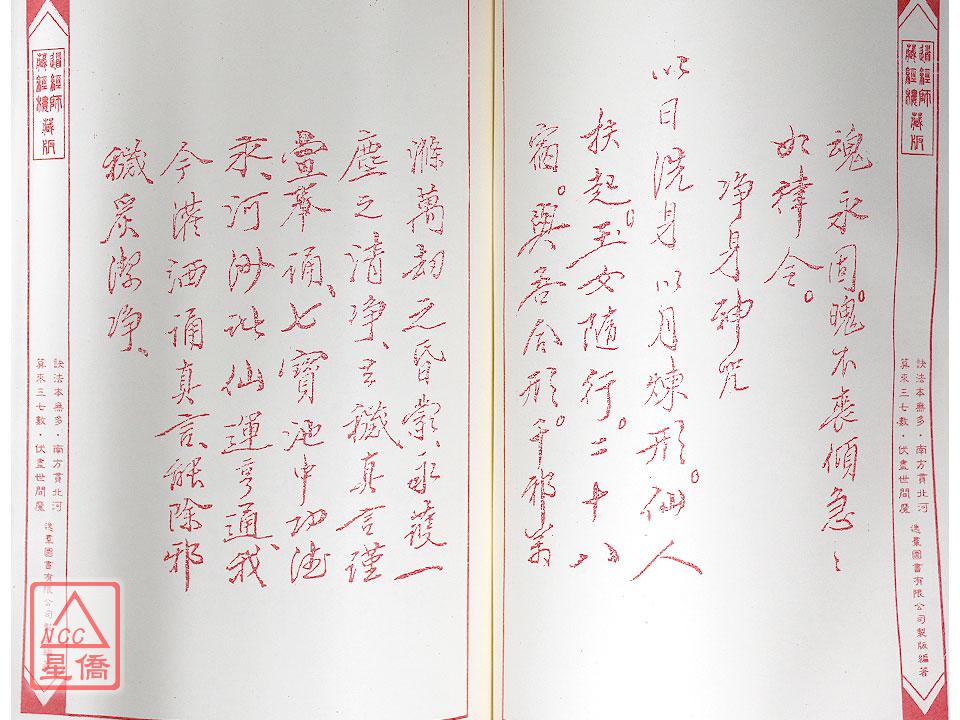 道經師
藏經樓
藏版
訣法本無多·南方貫北河
算來三七數·伏盡世間魔
逸羣圖書有限公司製版編著
魂永固。魄不喪傾急〻
如律令。
净身神咒
以日洗身以月煉形。仙人
扶起。玉女隨行。二十八
宿。與吾合形。千邪萬
滌萬劫之昏蒙、永護一
塵之清净、去穢真言謹
當奉誦、七寶池中功德
水、河沙比仙運亨通、我
今洒誦真言、能除邪
穢炁潔净、
道經師
藏經樓
藏版
訣法本無多·南方貫北河
算來三七數·伏盡世間魔
逸羣圖書有限公司製版編著
NCC
星僑